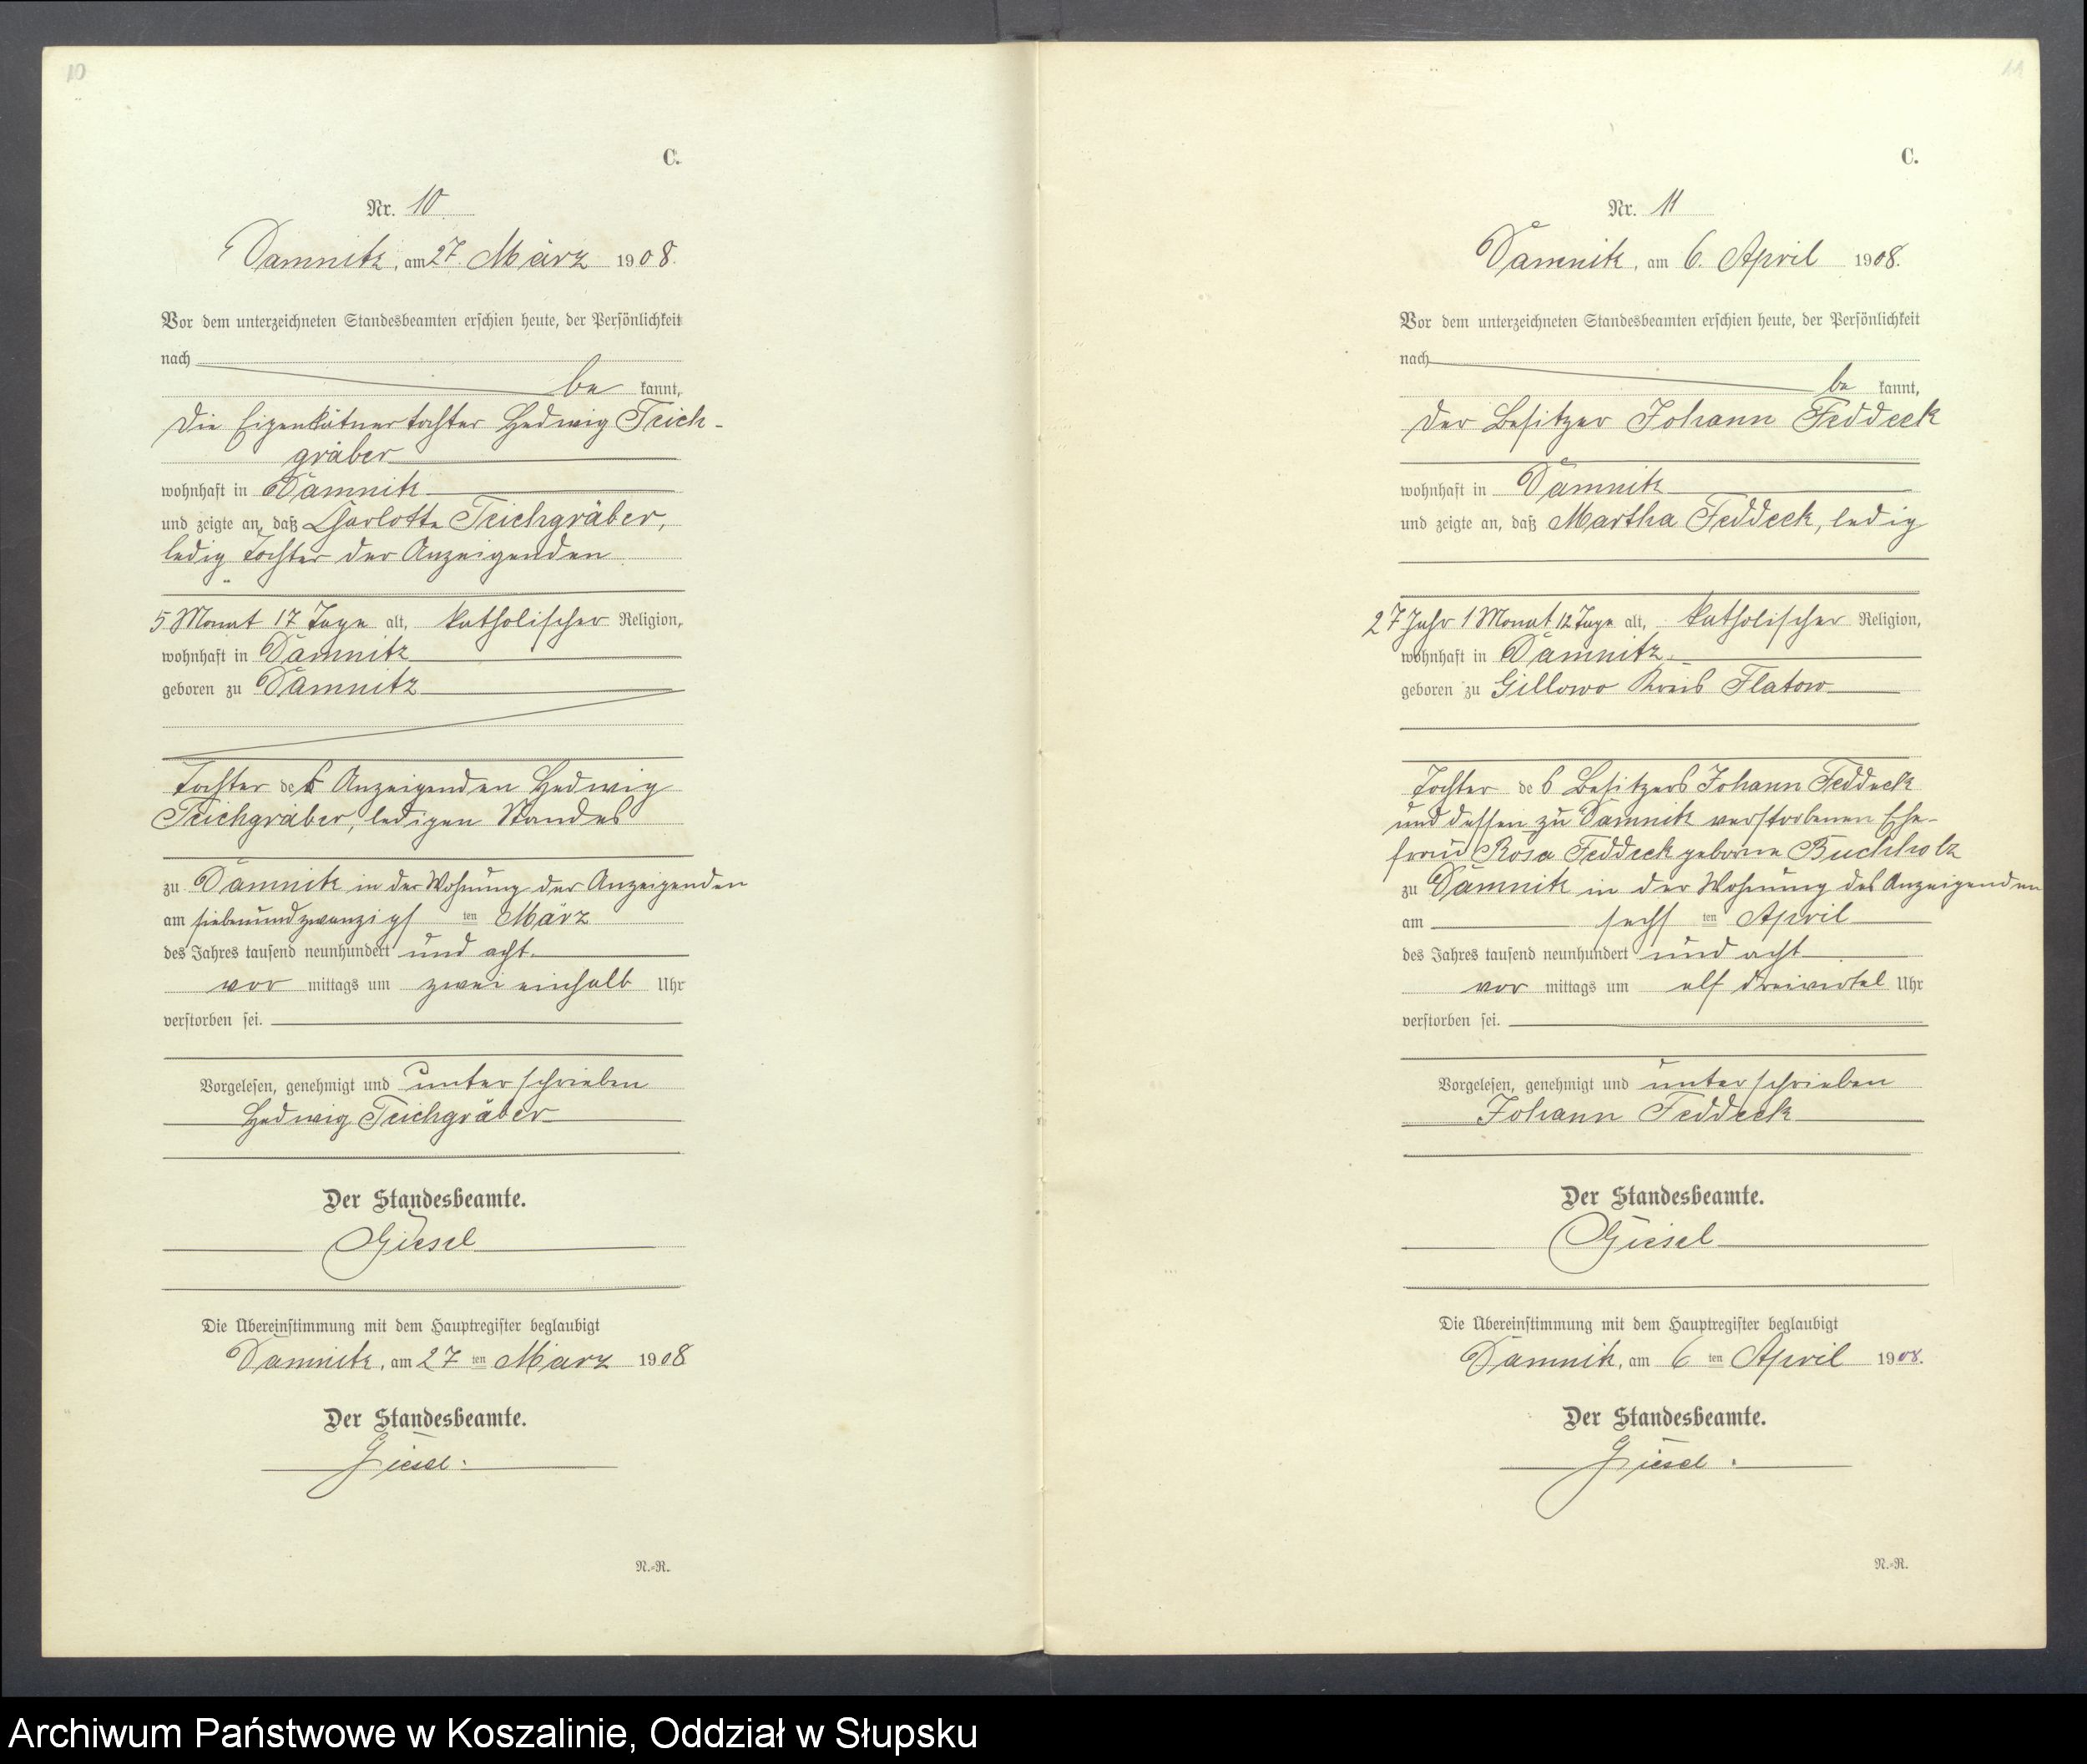 10
C.
Nr. 10
Damnitz, am 27. März 1908.
Vor dem unterzeichneten Standesbeamten erschien heute, der Persönlichkeit
nach
be kannt,
die Eigenkätnertochter Hedwig Teich-
gräber
wohnhaft in Damnitz
und zeigte an, daß Charlotte Teichgräber,
ledig Tochter der Anzeigenden
5 Monat 17 Tage alt, katholischer Religion,
wohnhaft in Damnitz
geboren zu Damnitz
Tochter der Anzeigenden Hedwig
Teichgräber, ledigen Standes
zu Damnitz in der Wohnung der Anzeigenden
am siebenundzwanzigs ten März
des Jahres tausend neunhundert und acht
vor mittags um zwei einhalb Uhr
verstorben sei.
Vorgelesen, genehmigt und unterschrieben
Hedwig Teichgräber
Der Standesbeamte.
Giesel
Die Übereinstimmung mit dem Hauptregister beglaubigt
Damnitz, am 27 ten März 1908
Der Standesbeamte.
Giesel.
N.-R.
11
C.
Nr. 11
Damnitz, am 6. April 1908.
Vor dem unterzeichneten Standesbeamten erschien heute, der Persönlichkeit
nach
be kannt,
der Besitzer Johann Feddeck
wohnhaft in Damnitz
und zeigte an, daß Martha Feddeck, ledig
27 Jahr 1 Monat 12 Tage alt, katholischer Religion,
wohnhaft in Damnitz
geboren zu Gillowo Kreis Flatow
Tochter des Besitzers Johann Feddeck
und dessen zu Damnitz verstorbenen Ehe-
frau Rosa Feddeck geborne Buchholz
zu Damnitz in der Wohnung des Anzeigenden
am sechs ten April
des Jahres tausend neunhundert und acht
vor mittags um elf dreiviertel Uhr
verstorben sei.
Vorgelesen, genehmigt und unterschrieben
Johann Feddeck
Der Standesbeamte.
Giesel
Die Übereinstimmung mit dem Hauptregister beglaubigt
Damnitz, am 6 ten April 1908.
Der Standesbeamte.
Giesel.
N.-R.
Archiwum Państwowe w Koszalinie, Oddział w Słupsku